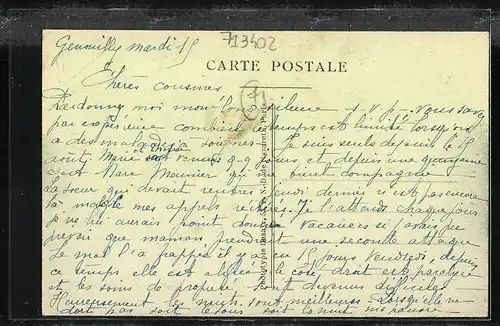 Genouilly mardi 15
713402
CARTE POSTALE
71
Chères cousines
Pardonnez moi mon long silence s. v. p. Vous savez
par expérience combien le temps est limité lorsqu'on
a des malades à soigner. Je suis seule depuis le 15
août. Marie et sont venues q.q. jours et depuis une quinzaine
c'est Mme Meunier qui me tient compagnie
la sœur qui devait rentrer jeudi dernier n'est pas encore
là malgré mes appels réitérés. Je l'attends chaque jour
je ne lui aurais point donné vacances si j'avais pu
prévoir que maman prendrait une seconde attaque
Le mal l'a frappée il y a eu 15 jours vendredi, depuis
ce temps elle est alitée le côté droit est paralysé
et les soins de propreté sont devenus difficiles
Heureusement les nuits sont meilleures. Lorsqu'elle ne
dort pas soit le jour soit la nuit ma pauvre